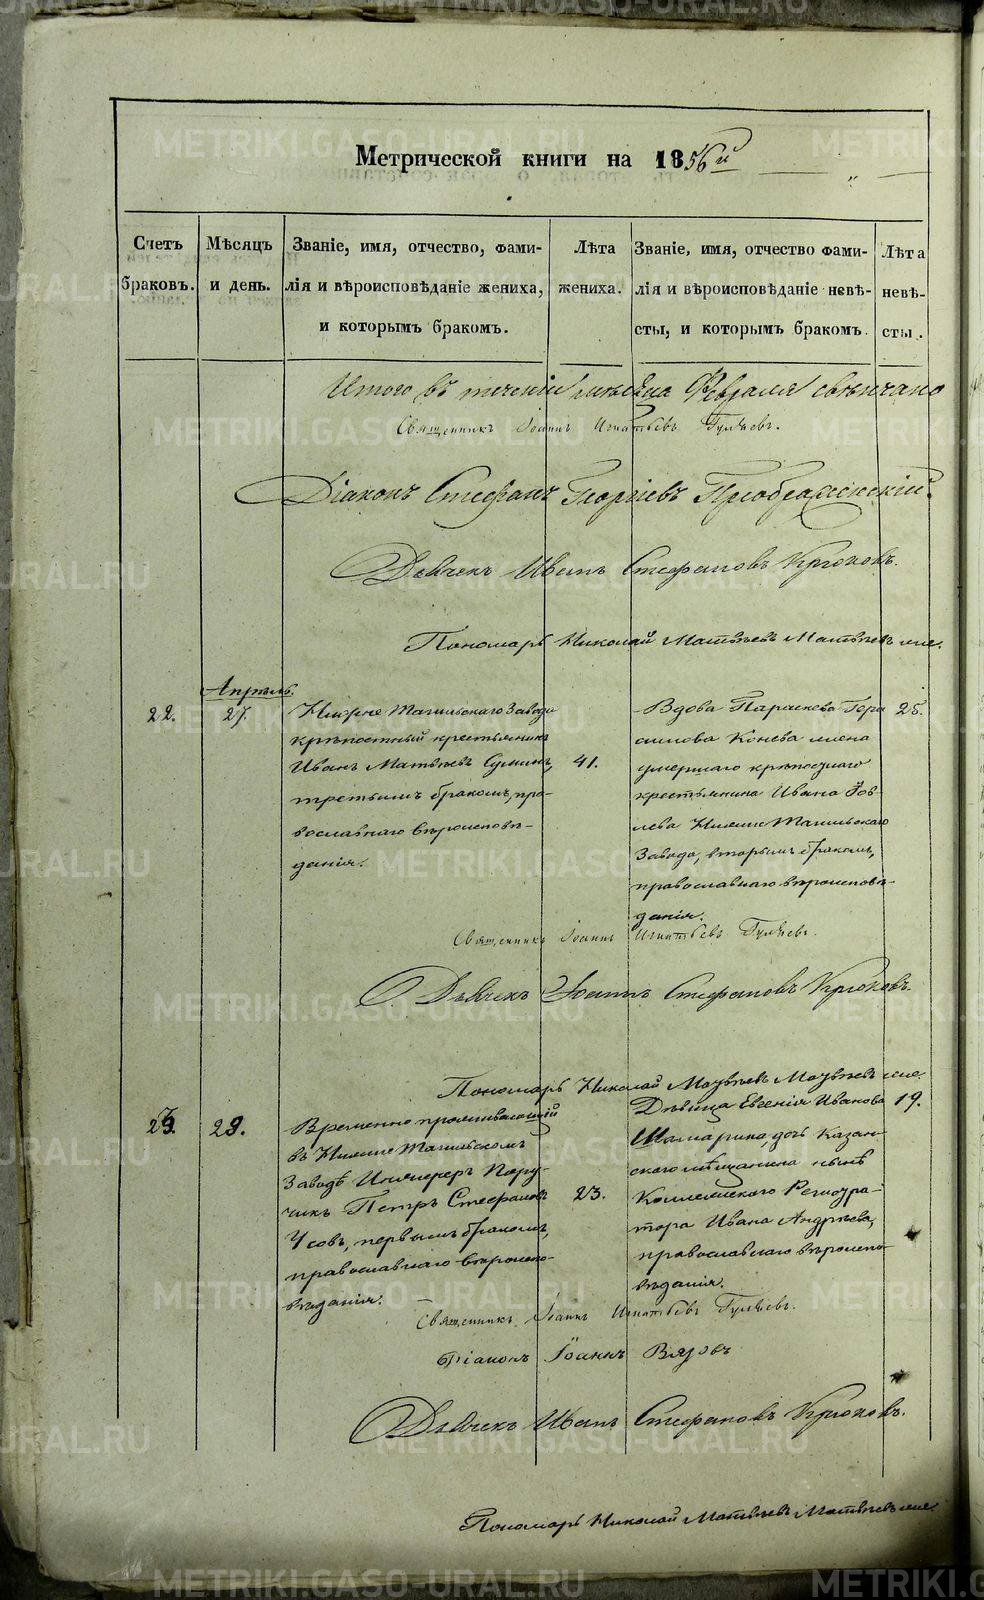 Метрической книги на 1856й
Счетъ браковъ.
Мѣсяцъ и день.
Званіе, имя, отчество, фами-
лія и вѣроисповѣданіе жениха,
и которымъ бракомъ.
Лѣта жениха.
Званіе, имя, отчество фами-
лія и вѣроисповѣданіе невѣ-
сты, и которымъ бракомъ.
Лѣта невѣ-
сты.
Итого въ теченіи мѣсяца Февраля свѣнчано
Священникъ Іоаннъ Игнатьевъ Гуляевъ.
Діаконъ Стефанъ Георгіевъ Преображенскій.
Дьячекъ Иванъ Стефановъ Крюковъ.
Пономарь Николай Матвѣевъ
Апрѣль.
22.
27.
Нижне Тагильскаго Завода
крѣпостный крестьянинъ
Иванъ Матвѣевъ
третьимъ бракомъ, пра-
вославнаго вѣроисповѣ-
данія.
41.
Вдова Параскева Гера
симова Конева жена
умершаго крѣпостнаго
крестьянина Ивана Іов-
лева Нижне Тагильскаго
Завода, вторымъ бракомъ,
православнаго вѣроисповѣ-
данія.
25.
Священникъ Іоаннъ Игнатьевъ Гуляевъ.
Дьячекъ Іоаннъ Стефановъ Крюковъ.
Пономарь Николай Матвѣевъ
23.
29.
Временно проживающій
въ Нижне Тагильскомъ
Заводѣ Инженеръ Пору-
чикъ Петръ Стефановъ
Усовъ, первымъ бракомъ,
православнаго вѣроиспо-
вѣданія.
23.
Дѣвица Евгенія Иванова
Шамарина, дочь Казан-
скаго мѣщанина нынѣ
Коллежскаго Регистра-
тора Ивана Андрѣева,
православнаго вѣроиспо-
вѣданія.
19.
Священникъ Іоаннъ Игнатьевъ Гуляевъ.
Діаконъ Іоаннъ Вязовъ
Дьячекъ Иванъ Стефановъ Крюковъ.
Пономарь Николай Матвѣевъ
METRIKI.GASO-URAL.RU